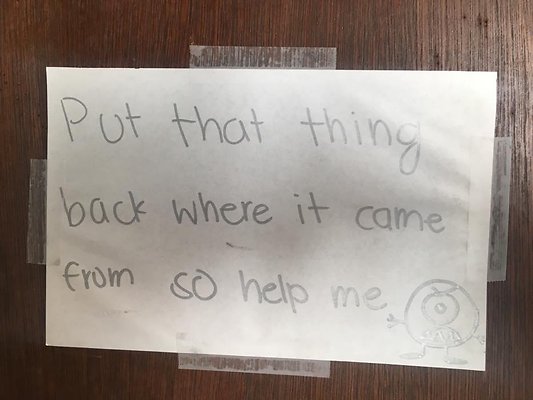 Put that thing
back where it came
from so help me